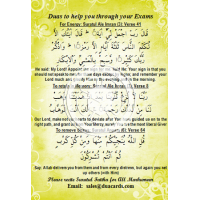 Duas to help you through your Exams
For Energy: Suratul Ale Imran (3): Verse 41
قَالَ رَبِّ اجْعَلْ لِي آيَةً قَالَ آيَتُكَ أَلَّا
تُكَلِّمَ النَّاسَ ثَلَاثَةَ أَيَّامٍ إِلَّا رَمْزًا وَاذْكُرْ
رَبَّكَ كَثِيرًا وَسَبِّحْ بِالْعَشِيِّ وَالْإِبْكَارِ
He said: My Lord! Appoint a sign for me. Said He: Your sign is that you
should not speak to men for three days except by signs, and remember your
Lord much and glorify Him in the evening and the morning.
Ale Imran (3): Verse 8
Our Lord, make not our hearts to deviate after You have guided us to the
right path, and grant us from Your mercy; surely You are the most liberal Giver
To remove (6): Verse 64
قُلِ اللَّهُ يُنَجِّيكُمْ مِنْهَا وَمِنْ كُلِّ كَرْبٍ
ثُمَّ أَنْتُمْ تُشْرِكُونَ
Say: Allah delivers you from them and from every distress, but again you set
up others (with Him)
Please recite Suratul Fatiha for All Marhumeen
Email: sales@duacards.com